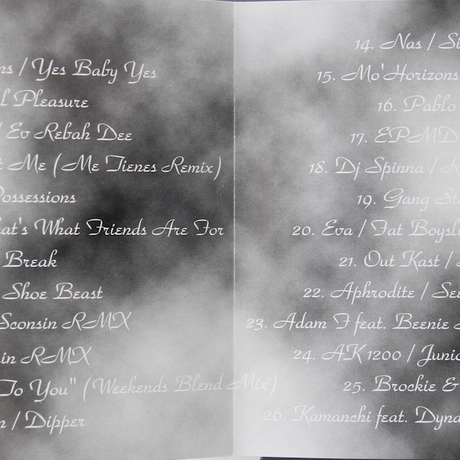 ns / Yes Baby Yes
l Pleasure
/ Ev Rebah Dee
t Me (Me Tienes Remix)
Possessions
hat's What Friends Are For
Break
Shoe Beast
Sconsin RMX
in RMX
To You" (Weekends Blend Mix)
n / Dipper
14. Nas / Si
15. Mo'Horizons
16. Pablo
17. EPMD
18. Dj Spinna / R
19. Gang Sta
20. Eva / Fat Boysli
21. Out Kast /
22. Aphrodite / See
23. Adam F feat. Beenie
24. AK1200 / Junio
25. Brockie &
26. Kamanchi feat. Dyna